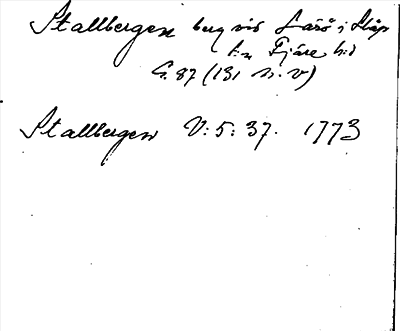 Stallbergen berg vid Lärö i Släp
s:n Fjäre h:d
G. 87 (131 n. v)
Stallbergen V: 5: 37. 1773